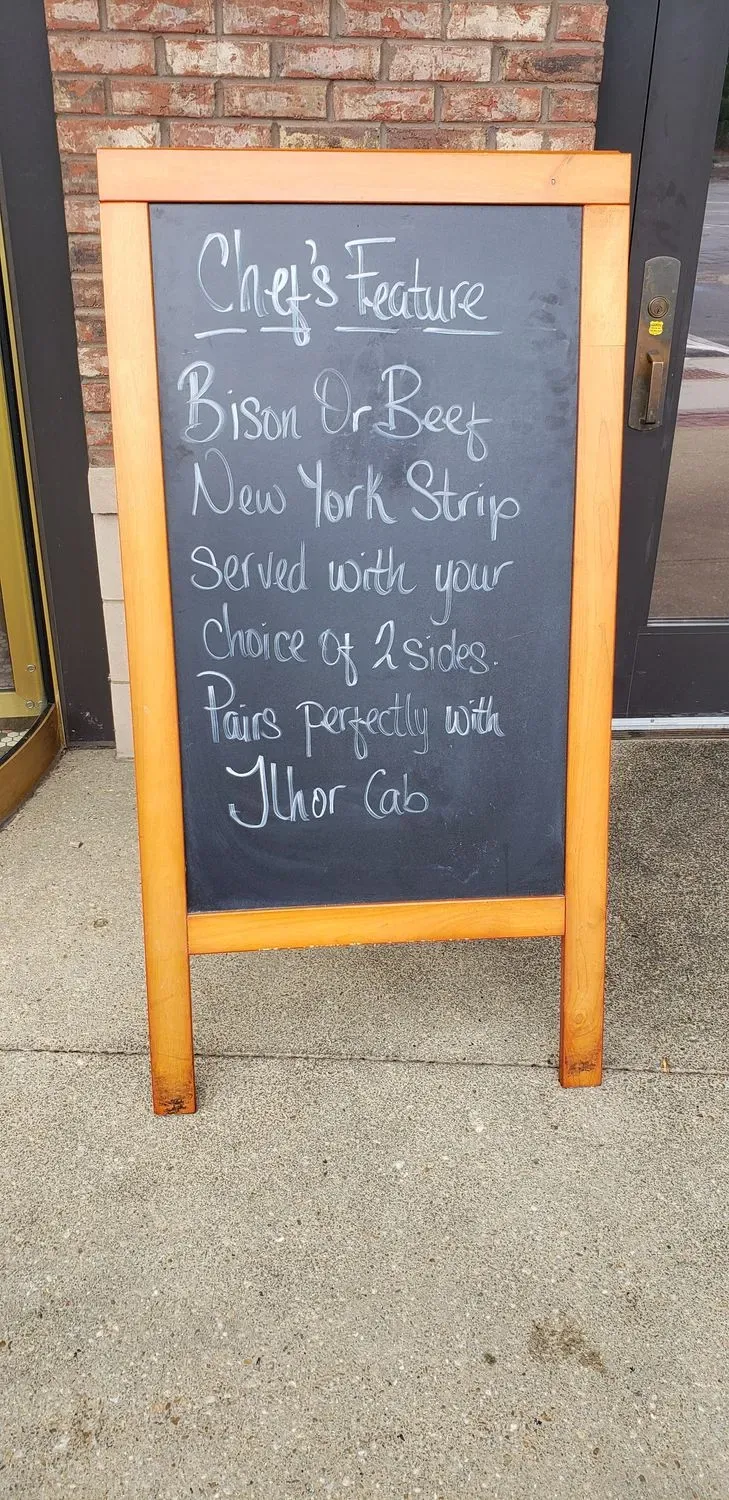 Chef's Feature
Bison Or Beef
New York Strip
served with your
choice of 2 sides.
Pairs perfectly with
Cab